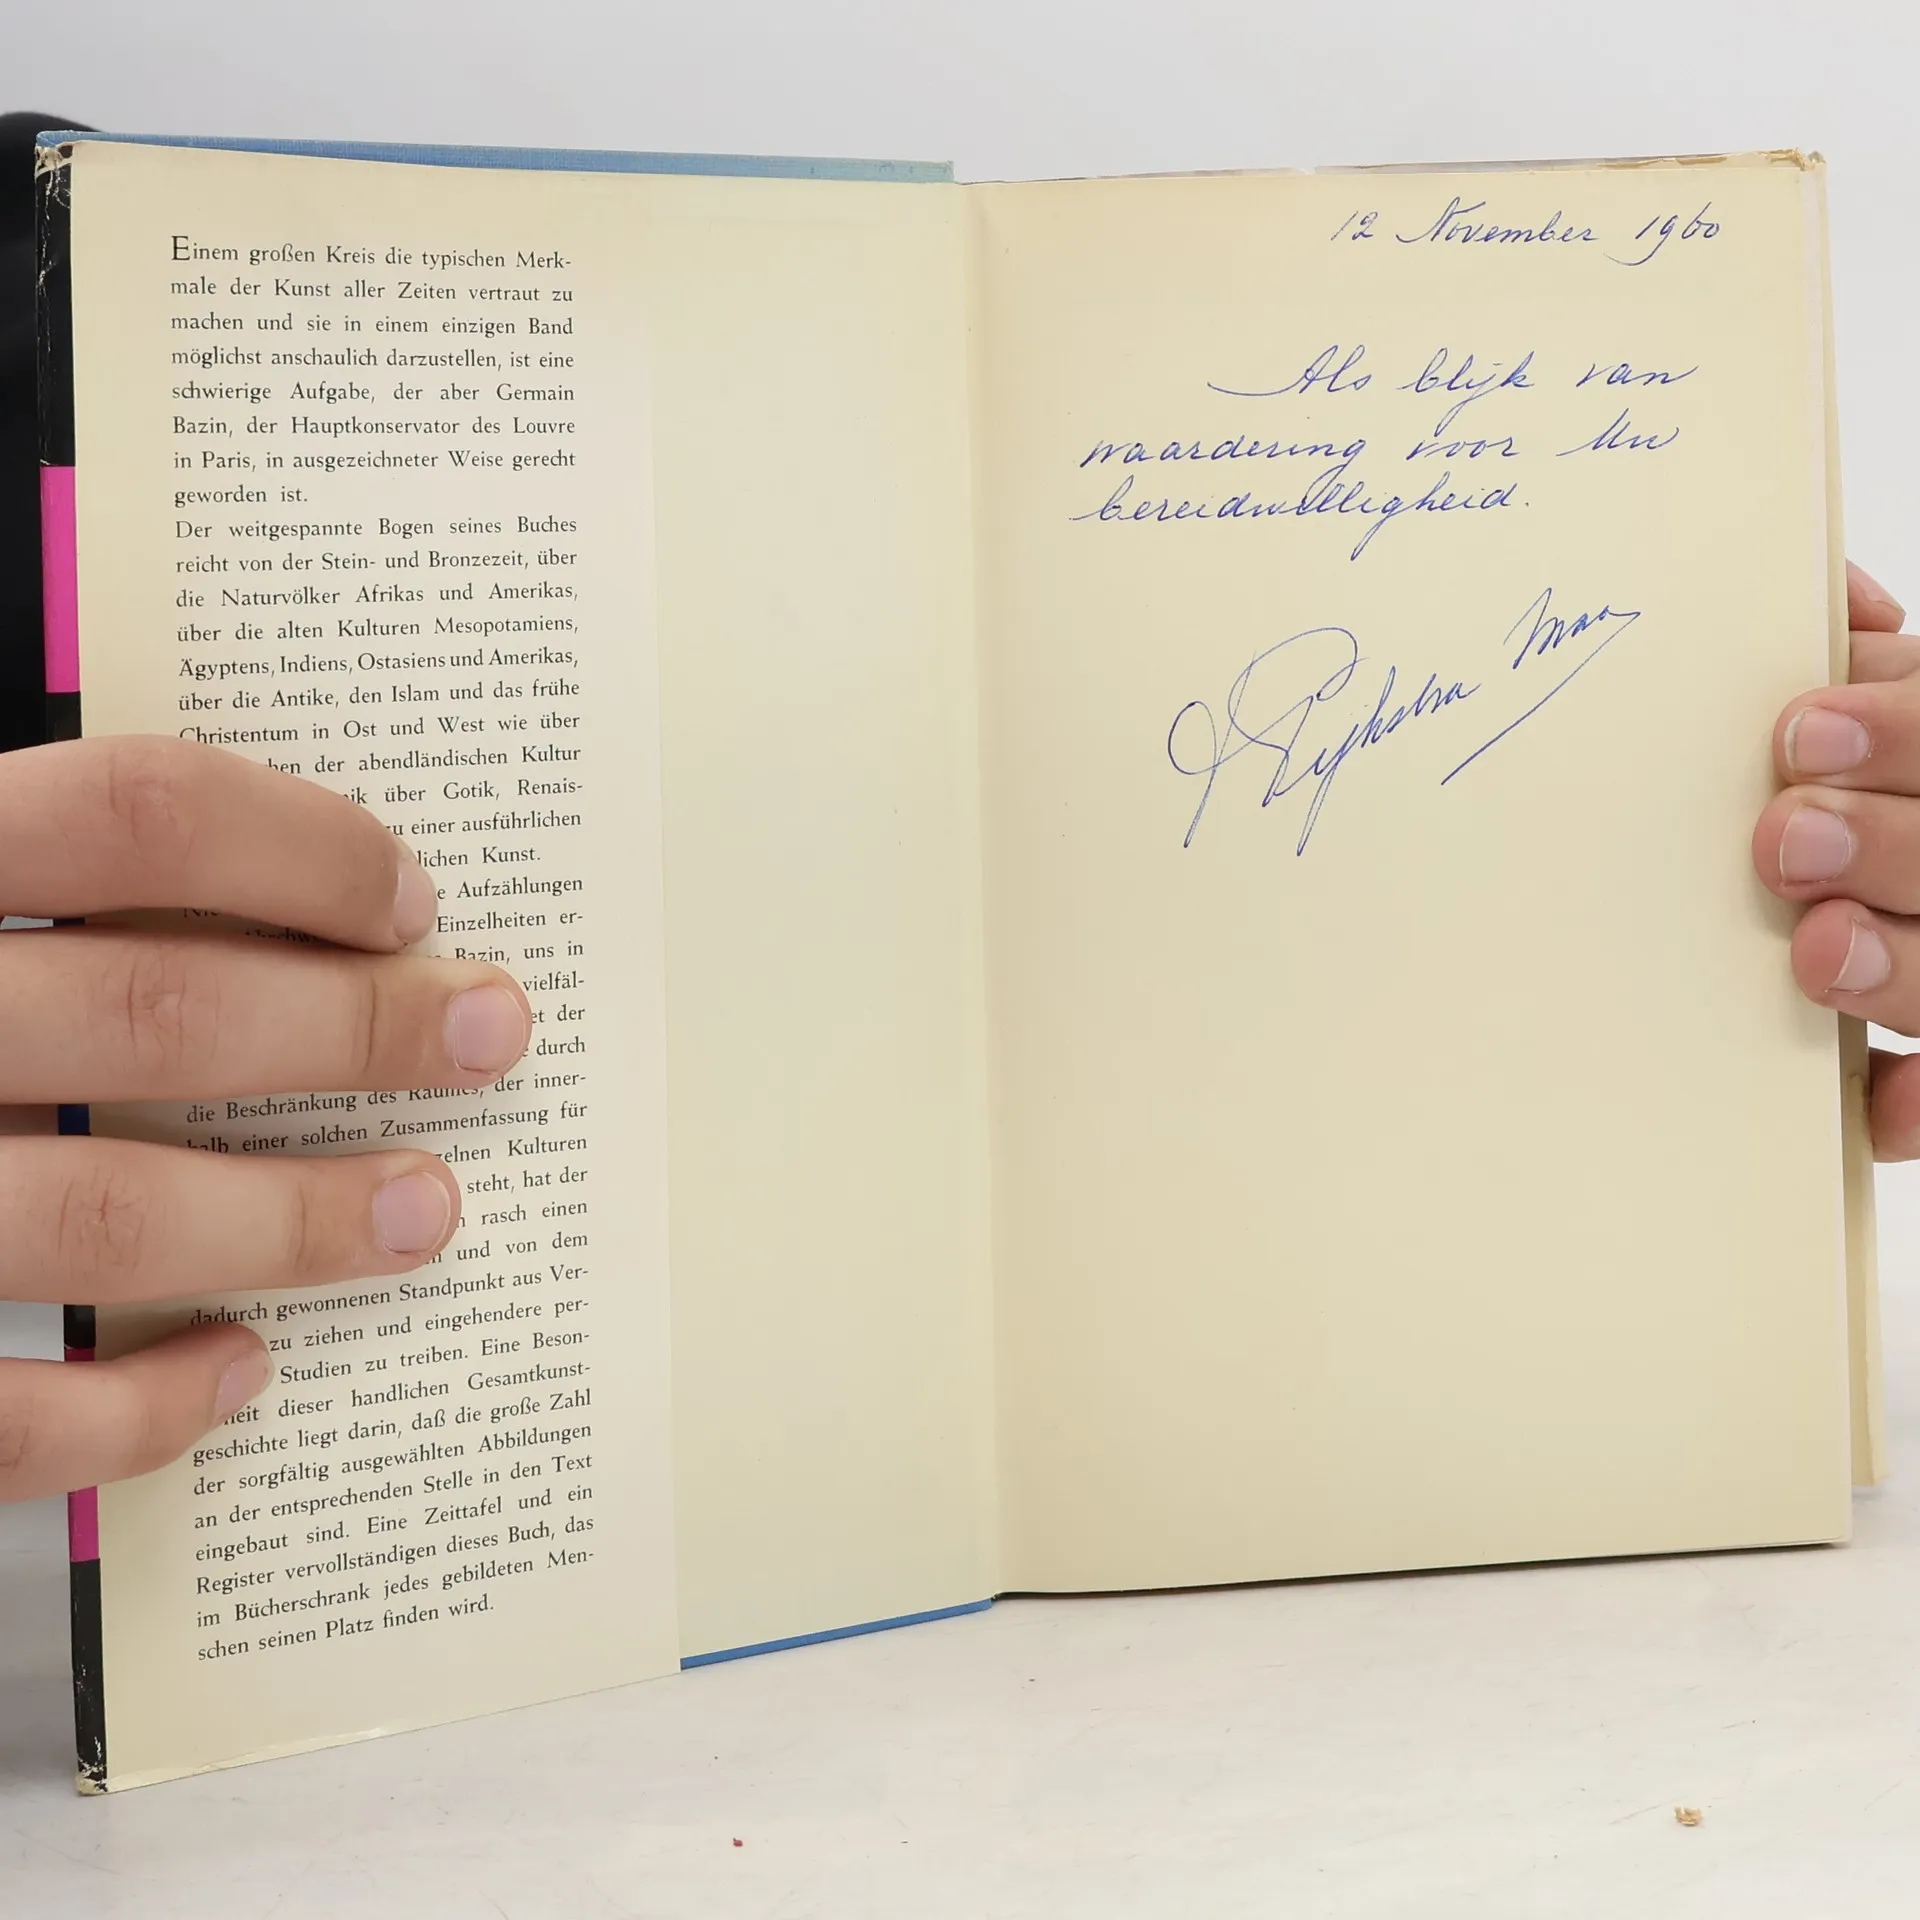 Einem großen Kreis die typischen Merk-
male der Kunst aller Zeiten vertraut zu
machen und sie in einem einzigen Band
möglichst anschaulich darzustellen, ist eine
schwierige Aufgabe, der aber Germain
Bazin, der Hauptkonservator des Louvre
in Paris, in ausgezeichneter Weise gerecht
geworden ist.
Der weitgespannte Bogen seines Buches
reicht von der Stein- und Bronzezeit, über
die Naturvölker Afrikas und Amerikas,
über die alten Kulturen Mesopotamiens,
Ägyptens, Indiens, Ostasiens und Amerikas,
über die Antike, den Islam und das frühe
Christentum in Ost und West wie über
der abendländischen Kultur
über Gotik, Renais-
einer ausführlichen
Kunst.
Aufzählungen
Einzelheiten er-
Bazin, uns in
vielfäl-
der
durch
die Beschränkung des Raumes, der inner-
halb einer solchen Zusammenfassung für
Kulturen
steht, hat der
rasch einen
und von dem
dadurch gewonnenen Standpunkt aus Ver-
zu ziehen und eingehendere per-
Studien zu treiben. Eine Beson-
dieser handlichen Gesamtkunst-
geschichte liegt darin, daß die große Zahl
der sorgfältig ausgewählten Abbildungen
an der entsprechenden Stelle in den Text
eingebaut sind. Eine Zeittafel und ein
Register vervollständigen dieses Buch, das
im Bücherschrank jedes gebildeten Men-
schen seinen Platz finden wird.
12 November 1960
Als blijk van
waardering voor Uw
bereidwilligheid.